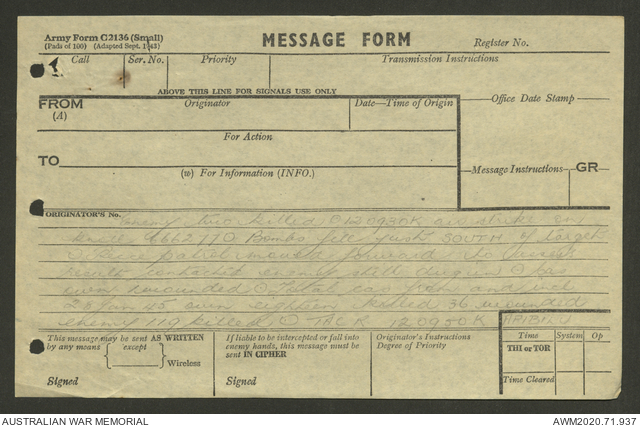 Army Form C2136 (Small)
(Pads of 100) (Adapted Sept. 1943)
MESSAGE FORM
Register No.
Call Ser. No. Priority Transmission Instructions
ABOVE THIS LINE FOR SIGNALS USE ONLY
FROM
(A)
Originator Date—Time of Origin
Office Date Stamp
For Action
TO
(w) For Information (INFO.)
Message Instructions GR
ORIGINATOR'S No.
Enemy two killed O 120930K air strike on
6662 77 O Bombs fell just SOUTH of target
O patrol moved forward to
results contacted enemy still dug in O
own wounded O Total cas from and incl
28 Jan 45 own eighteen killed 36 wounded
119 killed O 120950K
This message may be sent AS WRITTEN
by any means except
Wireless
Signed
If liable to be intercepted or fall into
enemy hands, this message must be
sent IN CIPHER
Signed
Originator's Instructions
Degree of Priority
Time System Op
THI or TOR
Time Cleared
AUSTRALIAN WAR MEMORIAL
AWM2020.71.937